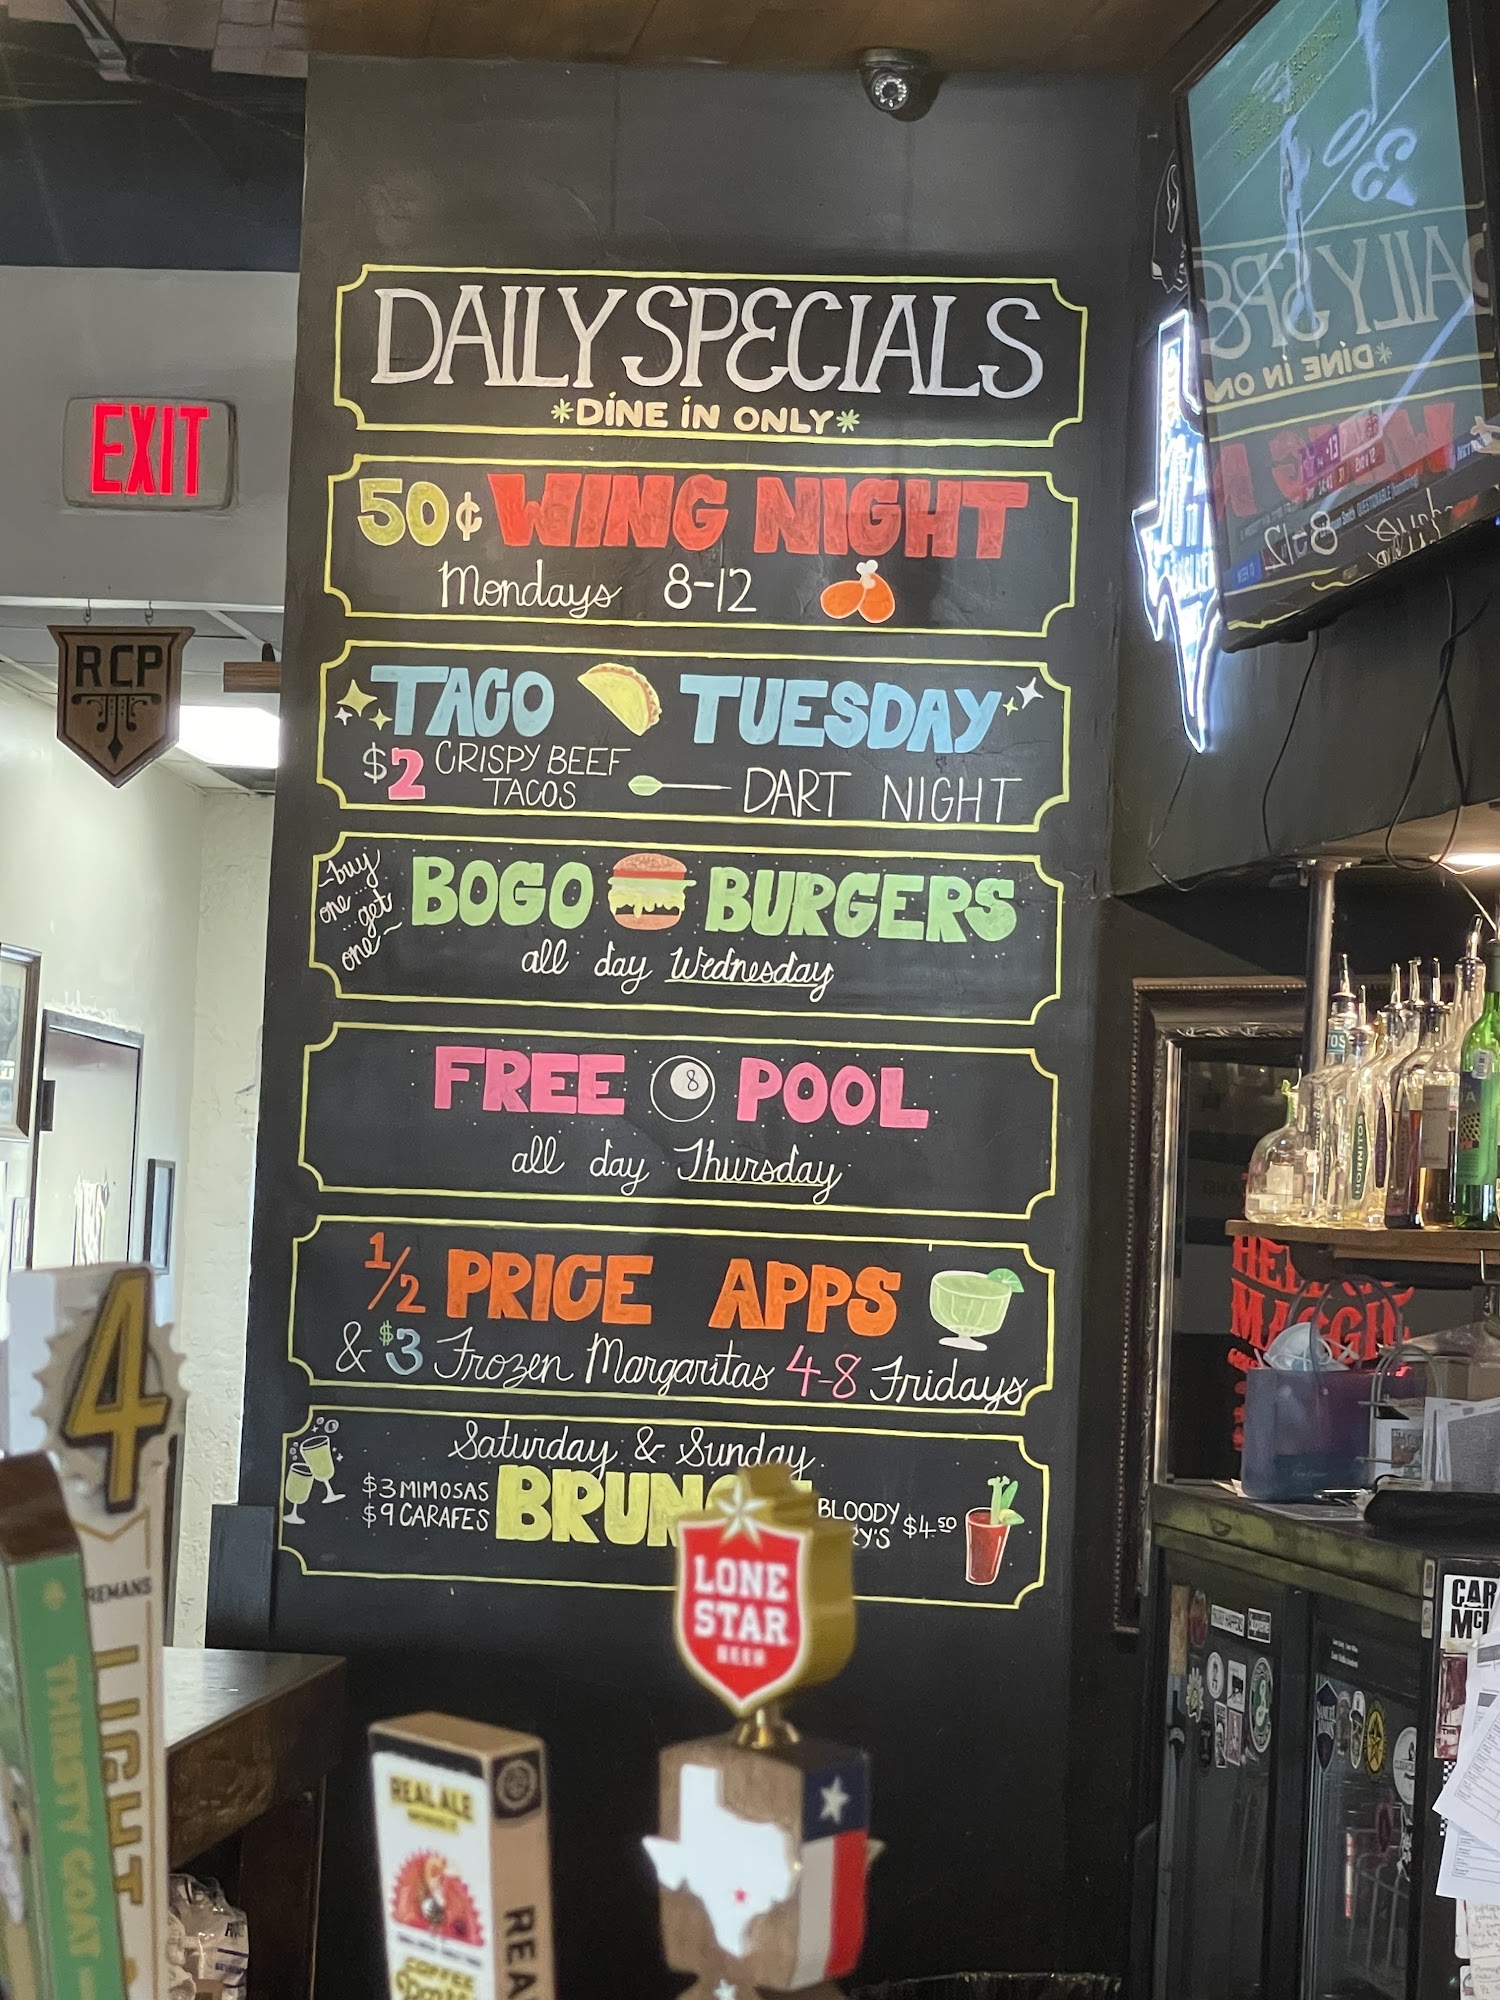 DAILY SPECIALS
*DINE IN ONLY*
50¢ WING NIGHT
Mondays 8-12
TACO TUESDAY
$2 CRISPY BEEF TACOS
DART NIGHT
~buy one... get one~
BOGO BURGERS
all day Wednesday
FREE 8 POOL
all day Thursday
1/2 PRICE APPS
& $3 Frozen Margaritas 4-8 Fridays
Saturday & Sunday
$3 MIMOSAS
$9 CARAFES
BLOODY
$4.50
EXIT
RCP
4
LIGHT
THIRSTY GOAT
REAL ALE
COFFEE
LONE
STAR
BEER
HORNITOS